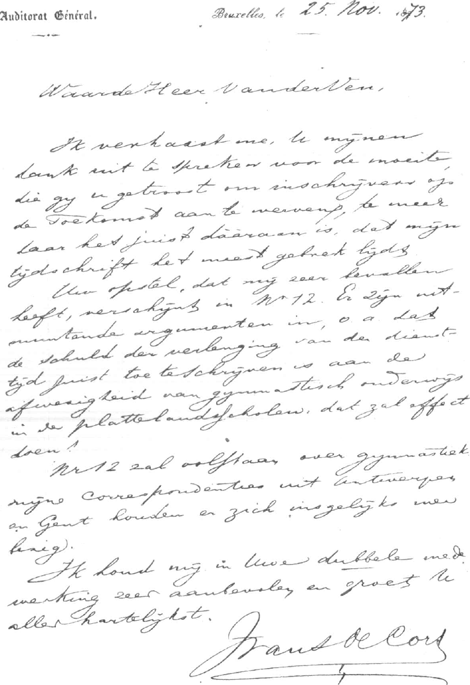 Auditorat Général.
Bruxelles, le 25. Nov. 1873.
Waarde Heer VanderVen,
Ik verhaast me, U mynen
dank uit te spreken voor de moeite,
die gy u getroost om inschrijvers op
de Toekomst aan te werven, te meer
daar het juist dááraan is, dat mijn
tijdschrift het meest gebrek lijdt
Uw opstel, dat my zeer bevallen
heeft, verschijnt in No 12. Er zijn uit-
muntende argumenten in, o a dat
de schuld der verlenging van den dienst-
tijd juist toe te schrijven is aan de
afwezigheid van gymnastisch onderwijs
in de plattelandsscholen. dat zal effect
doen!
Nr 12 zal volstaan over gymnastiek
mijne correspondenties uit Antwerpen
en Gent houden er zich insgelijks mee
bezig.
Ik houd my in Uwe dubbele mede-
werking zeer aanbevolen en groet U
aller hartelijkst.
Frans de Cort